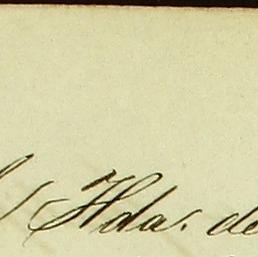 Hda. de